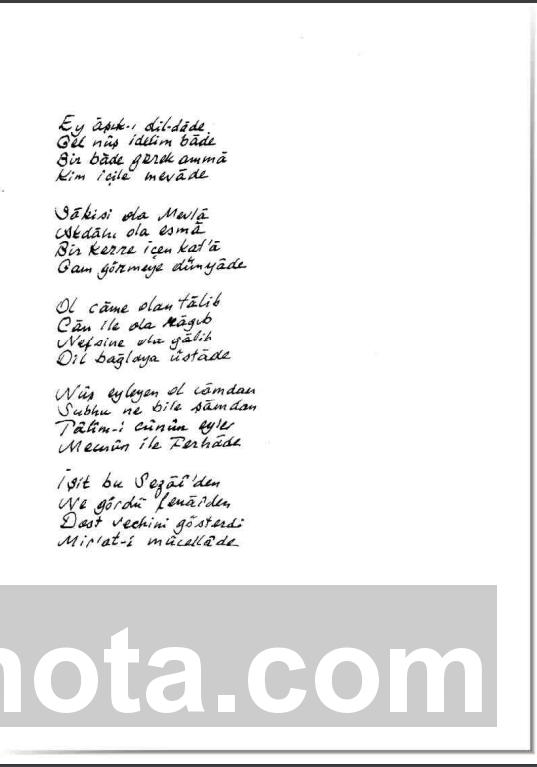 Ey âşık-ı dil-dâde
Gel nûş idelim bâde
Bir bâde gerek ammâ
Kim içile mevâde
Sâkisi ola Mevlâ
Akdâhı ola esmâ
Bir kerre içen kat'â
Gam görmeye dünyâde
Ol câme olan tâlib
Cân ile ola râgıb
Nefsine ola gâlib
Dil bağlaya üstâde
Nûş eyleyen ol câmdan
Subhu ne bile şâmdan
Tâlîm-i cünûn eyler
Mecnûn ile Ferhâde
İşit bu Sezâî'den
Ne gördü fenâîden
Dost vechini gösterdi
Mir'at-i mücellâde
nota.com